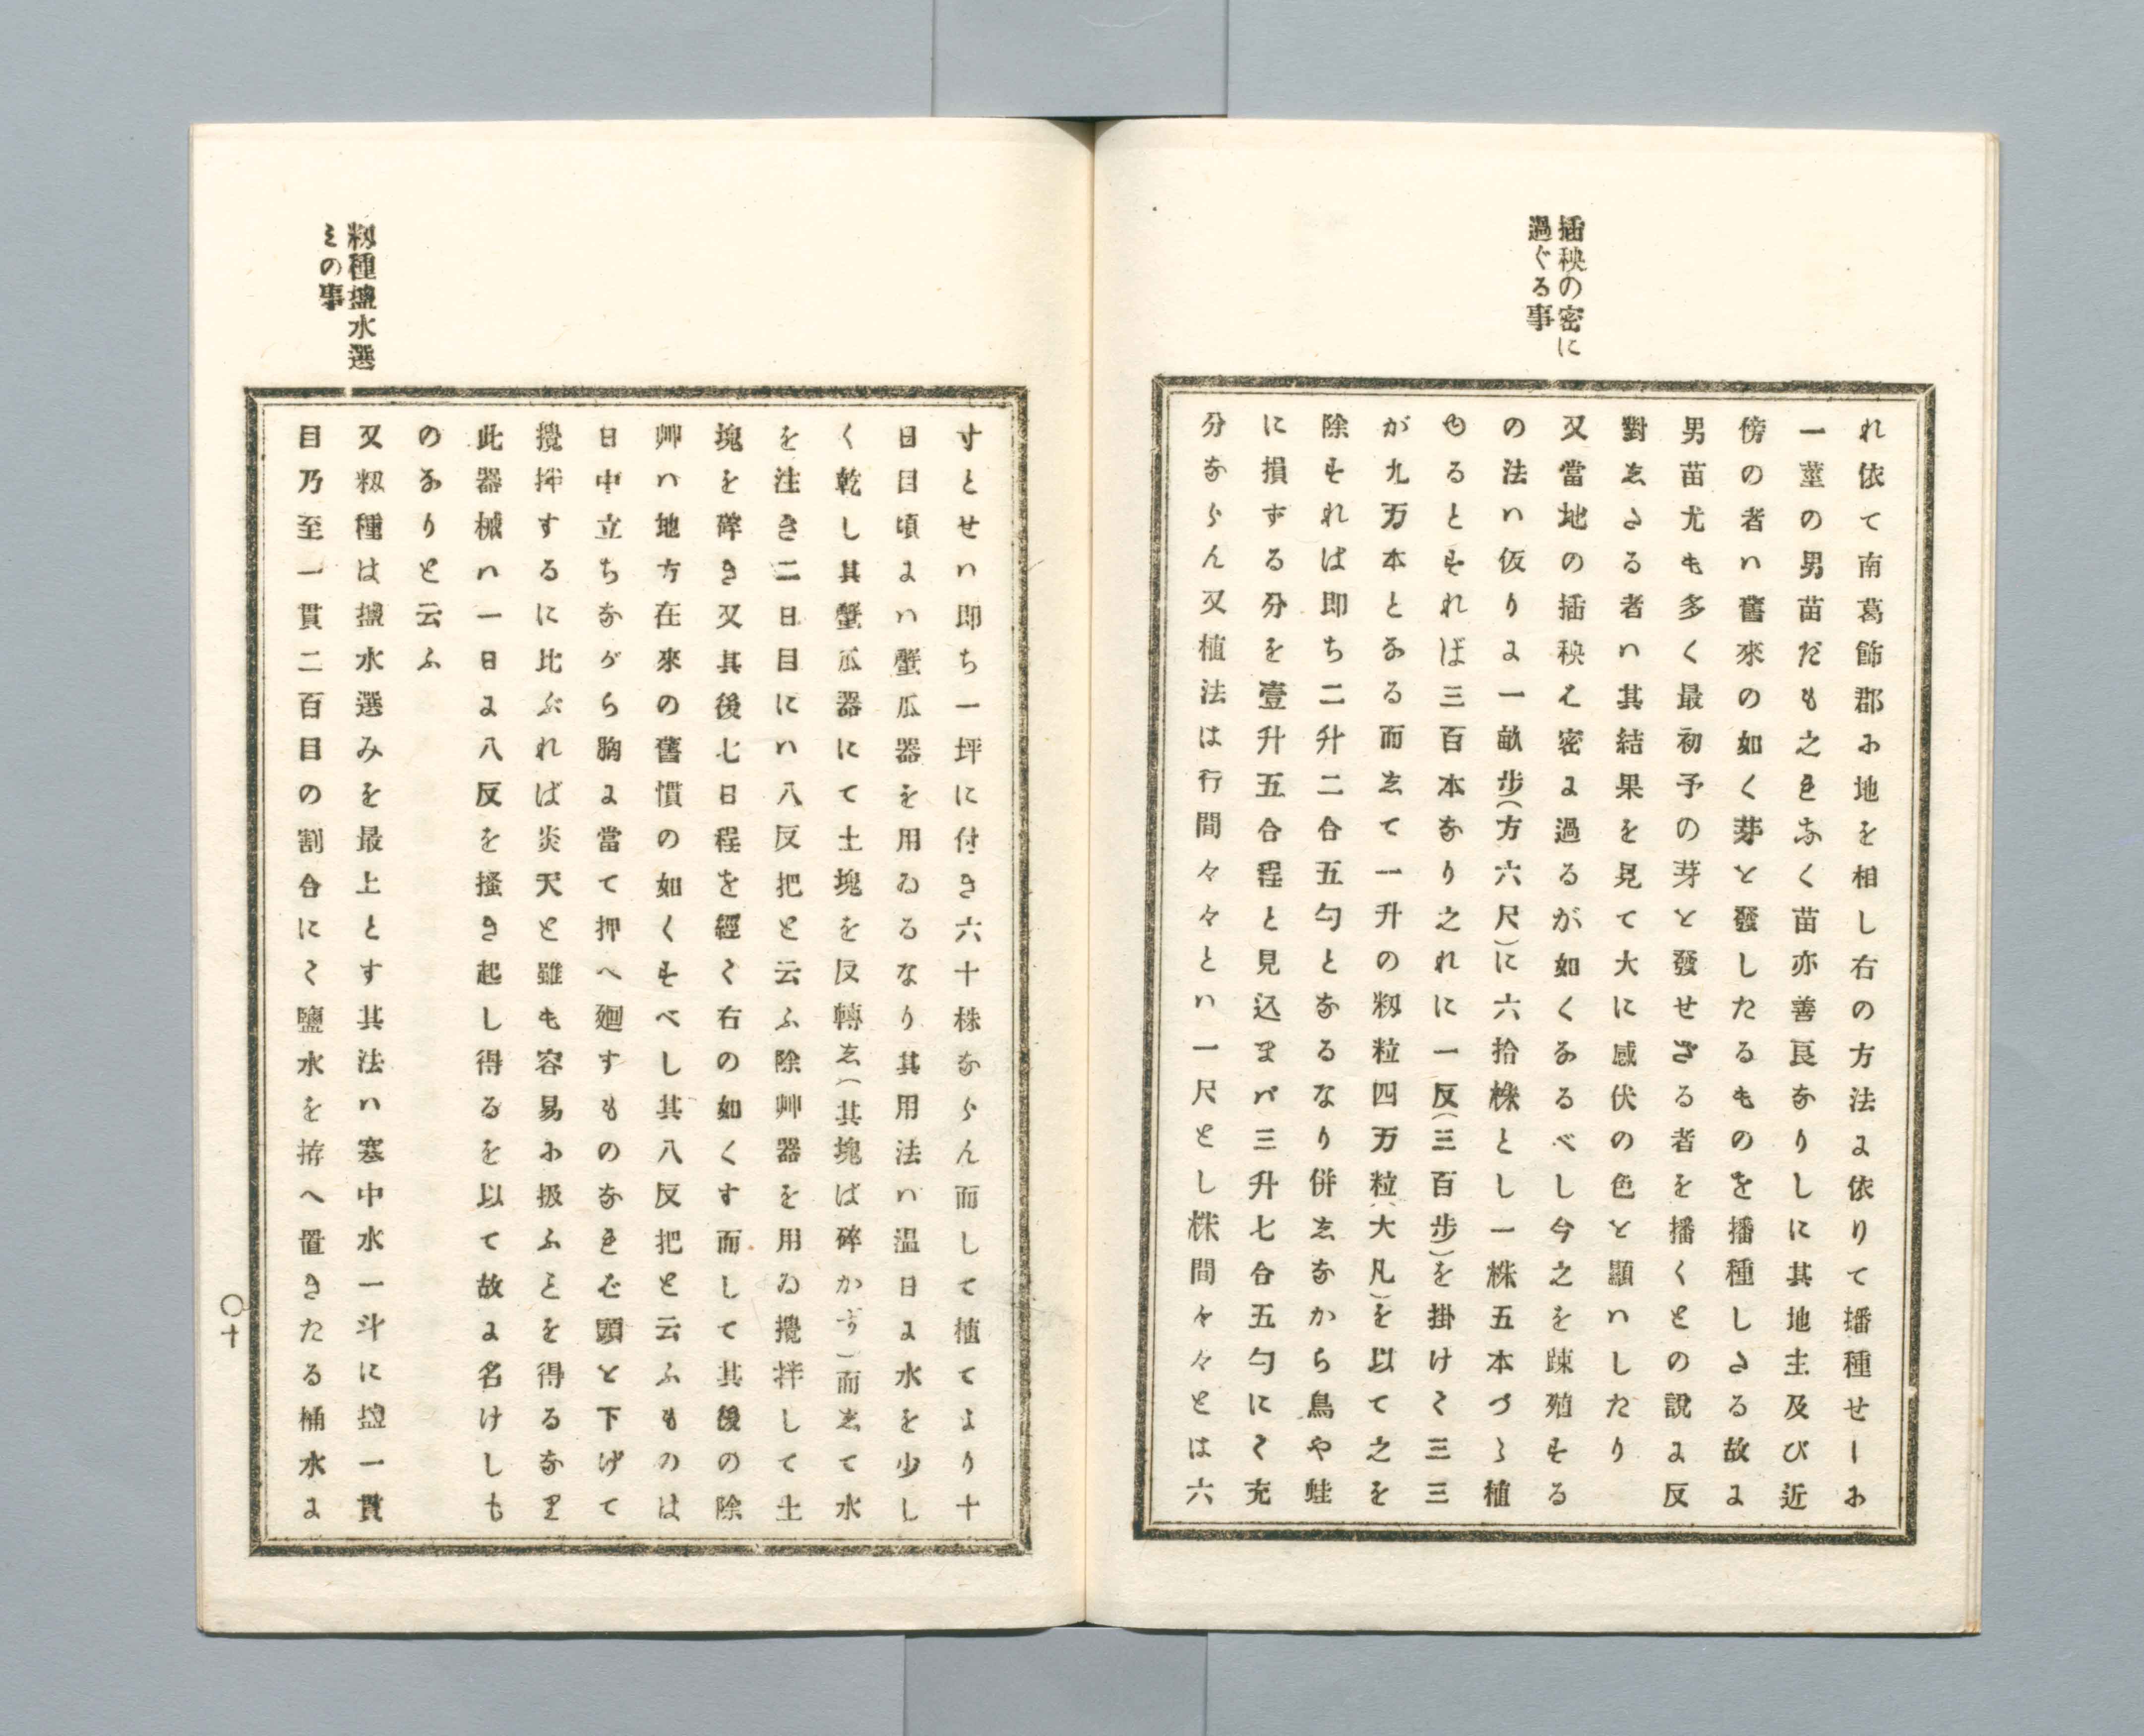 插秧の密に
過ぐる事
れ依て南葛飾郡お地を相し右の方法よ依りて播種せーお
一莖の男苗だも之きなく苗亦善良なりしに其地主及び近
傍の者ハ舊來の如く芽と發したるものを播種しさる故よ
男苗尤も多く最初予の芽と發せざる者を播くとの說よ反
對ゑさる者ハ其結果を見て大に感伏の色と顯ハしたり
又當地の插秧え密よ過るが如くあるべし今之を踈殖そる
の法ハ仮りよ一畝步(方六尺)に六拾株とし一株五本づゝ植
ゆるとそれば三百本なり之れに一反(三百步)を掛けて三三
が九万本とある而ゑて一升の籾粒四万粒(大凡)を以て之を
除それば即ち二升二合五勺となるなり併ゑなから鳥や蛙
に損ずる分を壹升五合程と見込まバ三升七合五勺にて充
分ならん又植法は行間々々とハ一尺とし株間々々とは六
寸とせハ即ち一坪に付き六十株ならん而して植てより十
日目頃よハ蟹爪器を用ゐるなり其用法ハ温日よ水を少し
く乾し其蟹爪器にて土塊を反轉ゑ(其塊ば碎かず)而ゑて水
を注き二日目にハ八反把と云ふ除艸器を用ゐ攪拌して土
塊を碎き又其後七日程を經て右の如くす而して其後の除
艸ハ地方在來の舊慣の如くそべし其八反把と云ふものは
日中立ちながら胸よ當て押へ廻すものなきど頭と下げて
攪拌するに比ぶれば炎天と雖も容易お扱ふとを得るなり
此器械ハ一日よ八反を搔き起し得るを以て故よ名けしも
のありと云ふ
籾種鹽水選
みの事
又籾種は鹽水選みを最上とす其法ハ寒中水一斗に鹽一貫
目乃至一貫二百目の割合にて鹽水を拵へ置きたる桶水よ
〇十